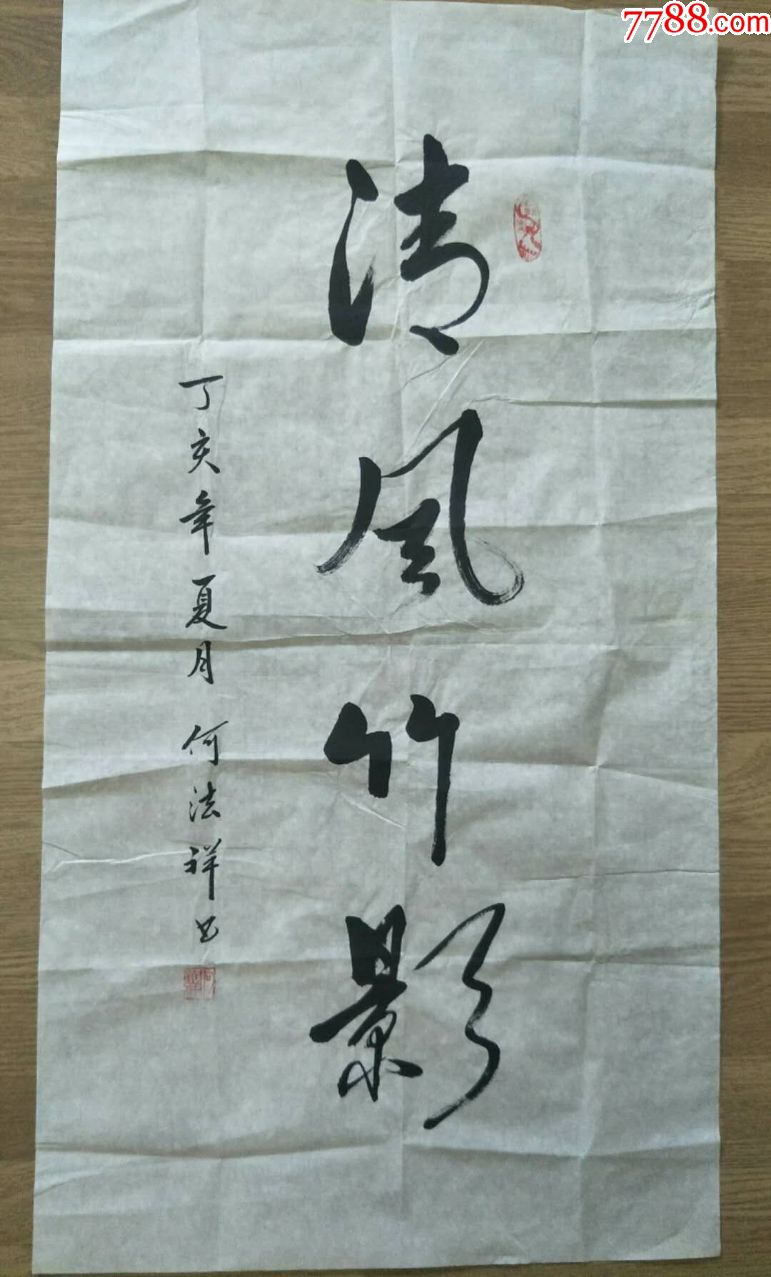 7788.com
清风竹影
丁亥年夏月 何法祥书